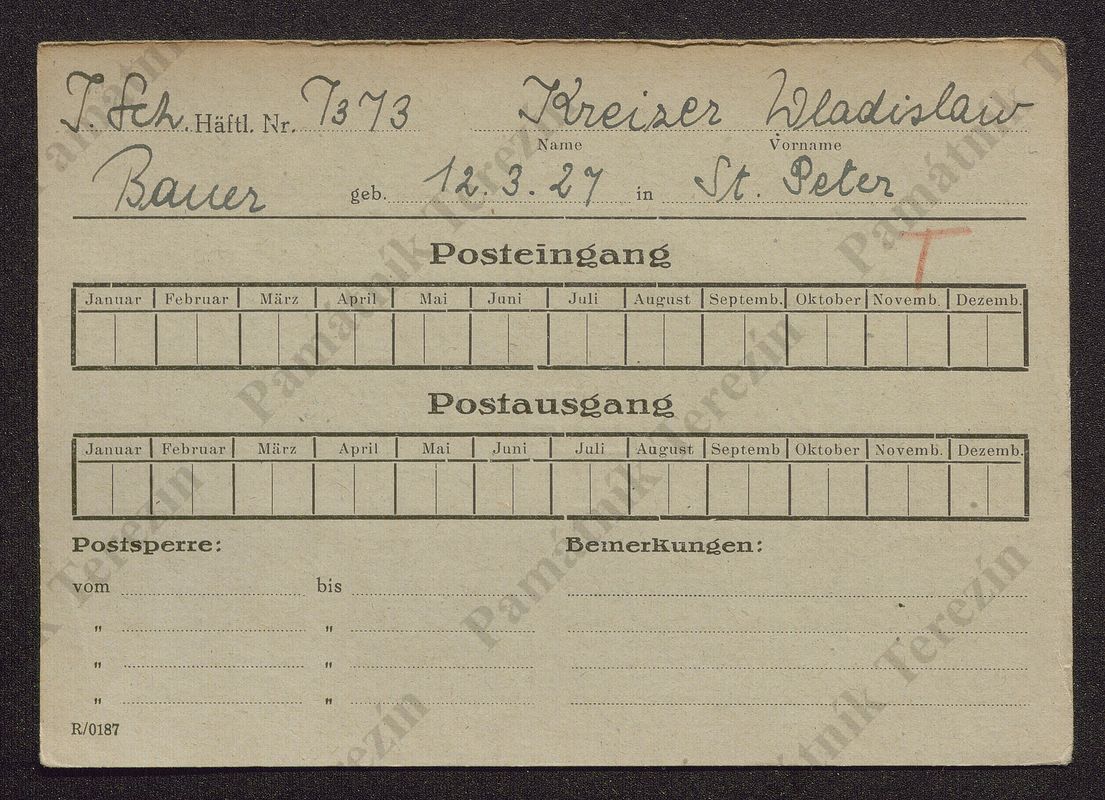 J. Sch. Häftl. Nr. 7373 Kreizer Wladislaw
Name Vorname
Bauer geb. 12. 3. 27 in St. Peter
T
Posteingang
Januar Februar März April Mai Juni Juli August Septemb. Oktober Novemb. Dezemb.
Postausgang
Januar Februar März April Mai Juni Juli August Septemb Oktober Novemb. Dezemb.
Postsperre: Bemerkungen:
vom bis
" "
" "
" "
R/0187
Památník Terezín